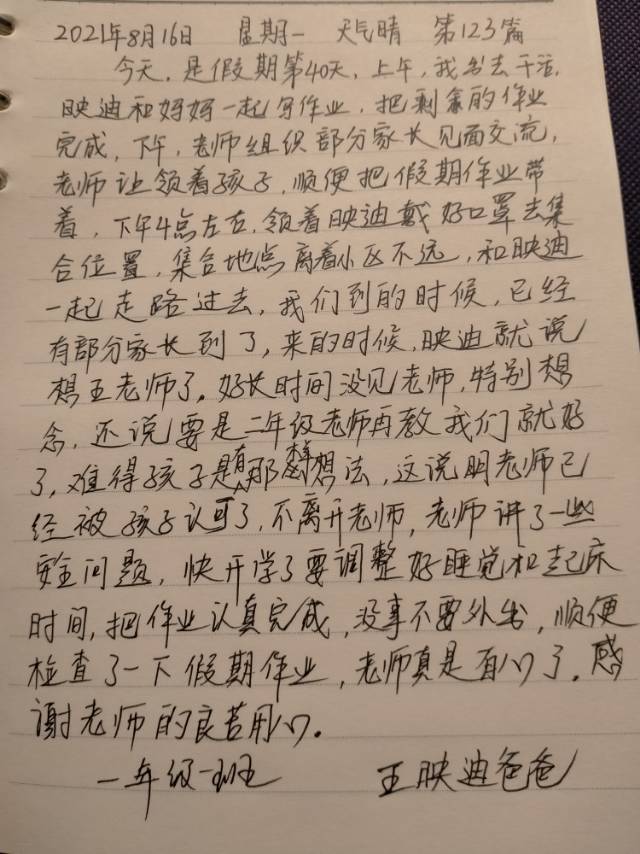 2021年8月16日 星期一 天气晴 第123篇
今天,是假期第40天,上午,我出去干活,
映迪和妈妈一起写作业,把剩余的作业
完成,下午,老师组织部分家长见面交流,
老师让领着孩子,顺便把假期作业带
着,下午4点左右,领着映迪戴好口罩去集
合位置,集合地点离着小区不远,和映迪
一起走路过去,我们到的时候,已经
有部分家长到了,来的时候,映迪就说
想王老师了。好长时间没见老师,特别想
念,还说要是二年级老师再教我们就好
了,难得孩子是有那想法,这说明老师已
经被孩子认可了,不离开老师,老师讲了一些
安全问题,快开学了要调整好睡觉和起床
时间,把作业认真完成,没事不要外出,顺便
检查了一下假期作业,老师真是有心了。感
谢老师的良苦用心。
一年级一班 王映迪爸爸